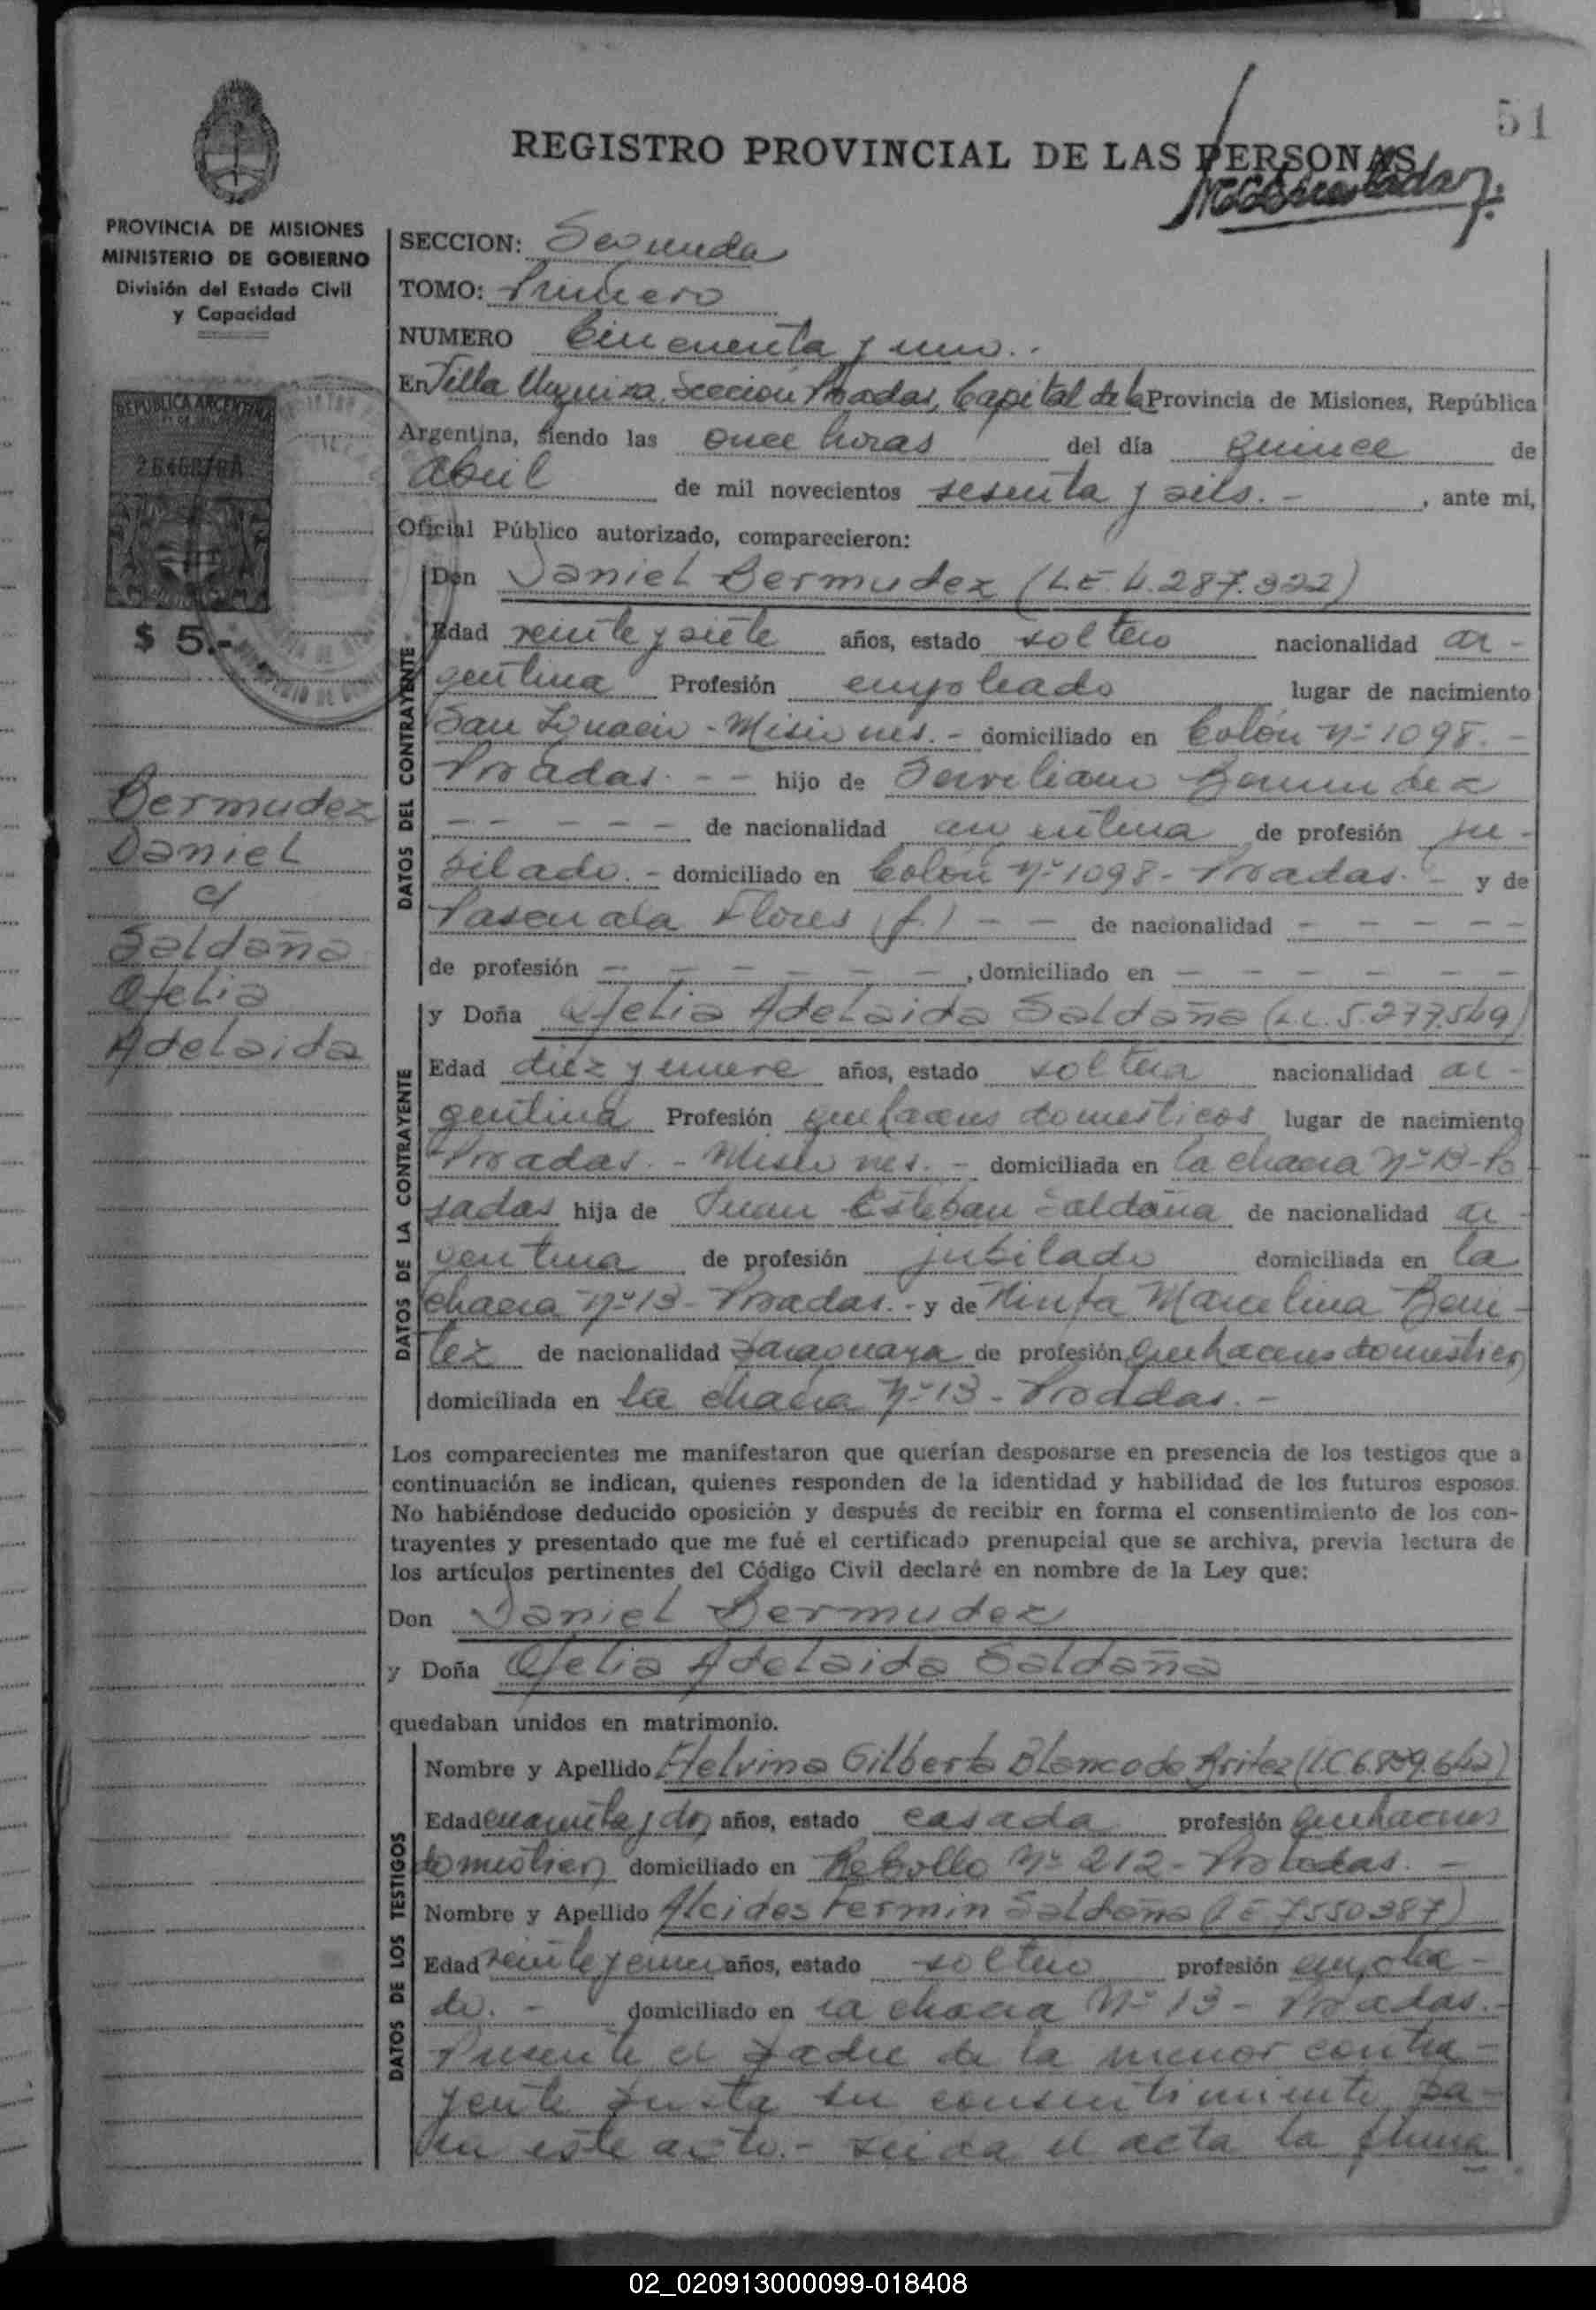 51
REGISTRO PROVINCIAL DE LAS PERSONAS
PROVINCIA DE MISIONES
MINISTERIO DE GOBIERNO
División del Estado Civil
y Capacidad
REPUBLICA ARGENTINA
$ 5.-
Bermudez
Daniel
c/
Saldaña
Ofelia
Adelaida
SECCION: Segunda
TOMO: Primero
NUMERO Cincuenta y uno.-
En Villa Urquiza, Sección Posadas, Capital de la Provincia de Misiones, República
Argentina, siendo las once horas del día quince de
abril de mil novecientos sesenta y seis.- , ante mi,
Oficial Público autorizado, comparecieron:
DATOS DEL CONTRAYENTE
Don Daniel Bermudez (L.E. 4.287.322)
Edad veinte y siete años, estado soltero nacionalidad ar-
gentina Profesión empleado lugar de nacimiento
San Ignacio - Misiones.- domiciliado en Colón Nº 1098.-
Posadas.- - hijo de Serviliano Bermudez
- - - - - de nacionalidad argentina de profesión ju-
bilado.- domiciliado en Colón Nº 1098 - Posadas.- y de
Pascuala Flores (f.) - - de nacionalidad - - - -
de profesión - - - - - - , domiciliado en - - - - - -
DATOS DE LA CONTRAYENTE
y Doña Ofelia Adelaida Saldaña (L.C. 5.277.549)
Edad diez y nueve años, estado soltera nacionalidad ar-
gentina Profesión quehaceres domesticos lugar de nacimiento
Posadas.- Misiones.- domiciliada en la chacra Nº 13 - Po-
sadas hija de Juan Esteban Saldaña de nacionalidad ar-
gentina de profesión jubilado domiciliada en la
chacra Nº 13 - Posadas.- y de Ninfa Marcelina Beni-
tez de nacionalidad paraguaya de profesión quehaceres domesticos
domiciliada en la chacra Nº 13 - Posadas.-
Los comparecientes me manifestaron que querían desposarse en presencia de los testigos que a
continuación se indican, quienes responden de la identidad y habilidad de los futuros esposos.
No habiéndose deducido oposición y después de recibir en forma el consentimiento de los con-
trayentes y presentado que me fué el certificado prenupcial que se archiva, previa lectura de
los artículos pertinentes del Código Civil declaré en nombre de la Ley que:
Don Daniel Bermudez
y Doña Ofelia Adelaida Saldaña
quedaban unidos en matrimonio.
DATOS DE LOS TESTIGOS
Nombre y Apellido Etelvina Gilberta Blanco de Britez (LC
Edad cuarenta y dos años, estado casada profesión quehaceres
domesticos domiciliado en Rebollo Nº 212 - Posadas.-
Nombre y Apellido Alcides Fermin Saldaña (LE 7550387)
Edad veinte y años, estado soltero profesión emplea-
do.- domiciliado en la chacra Nº 13 - Posadas.-
Presente el padre de la menor contra-
yente presta su consentimiento pa-
ra este acto.- Leida el acta la firma
02_020913000099-018408